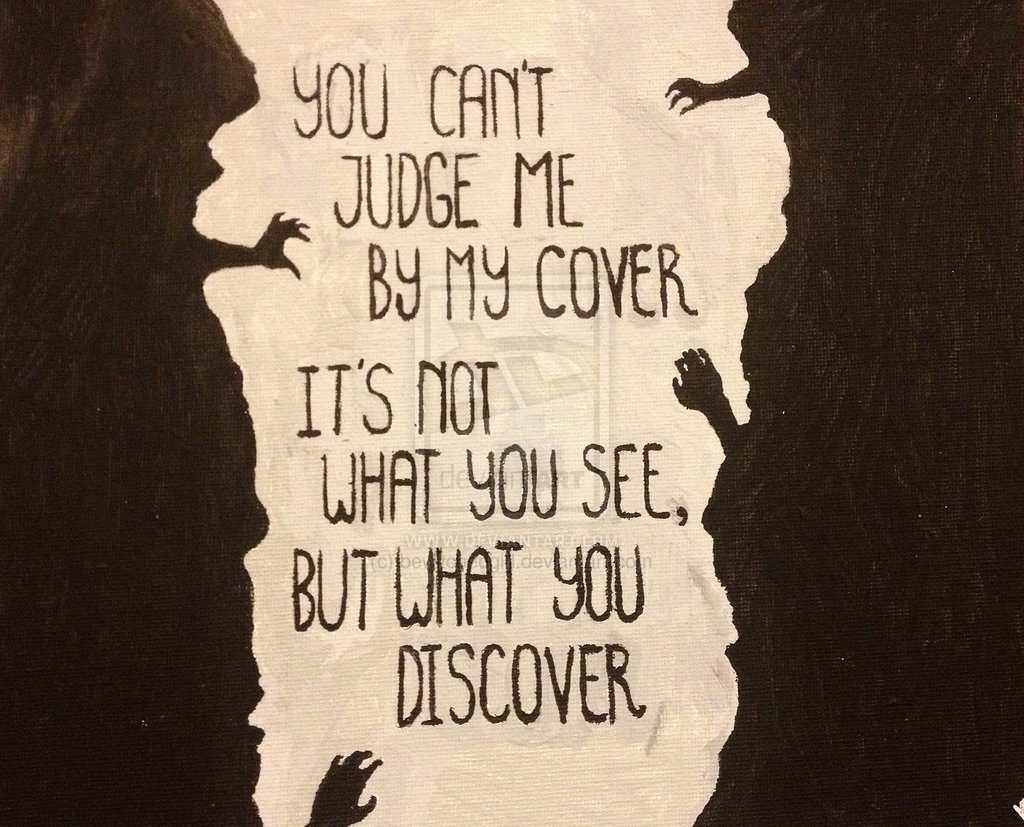 YOU CAN'T
JUDGE ME
BY MY COVER
IT'S NOT
WHAT YOU SEE,
BUT WHAT YOU
DISCOVER
deviantART
WWW.DEVIANTART.COM